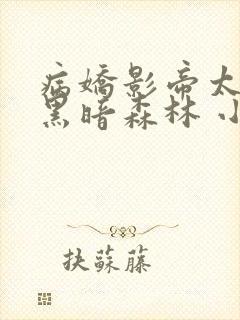 病嬌影帝太
黑暗森林 小
抉蘇藤